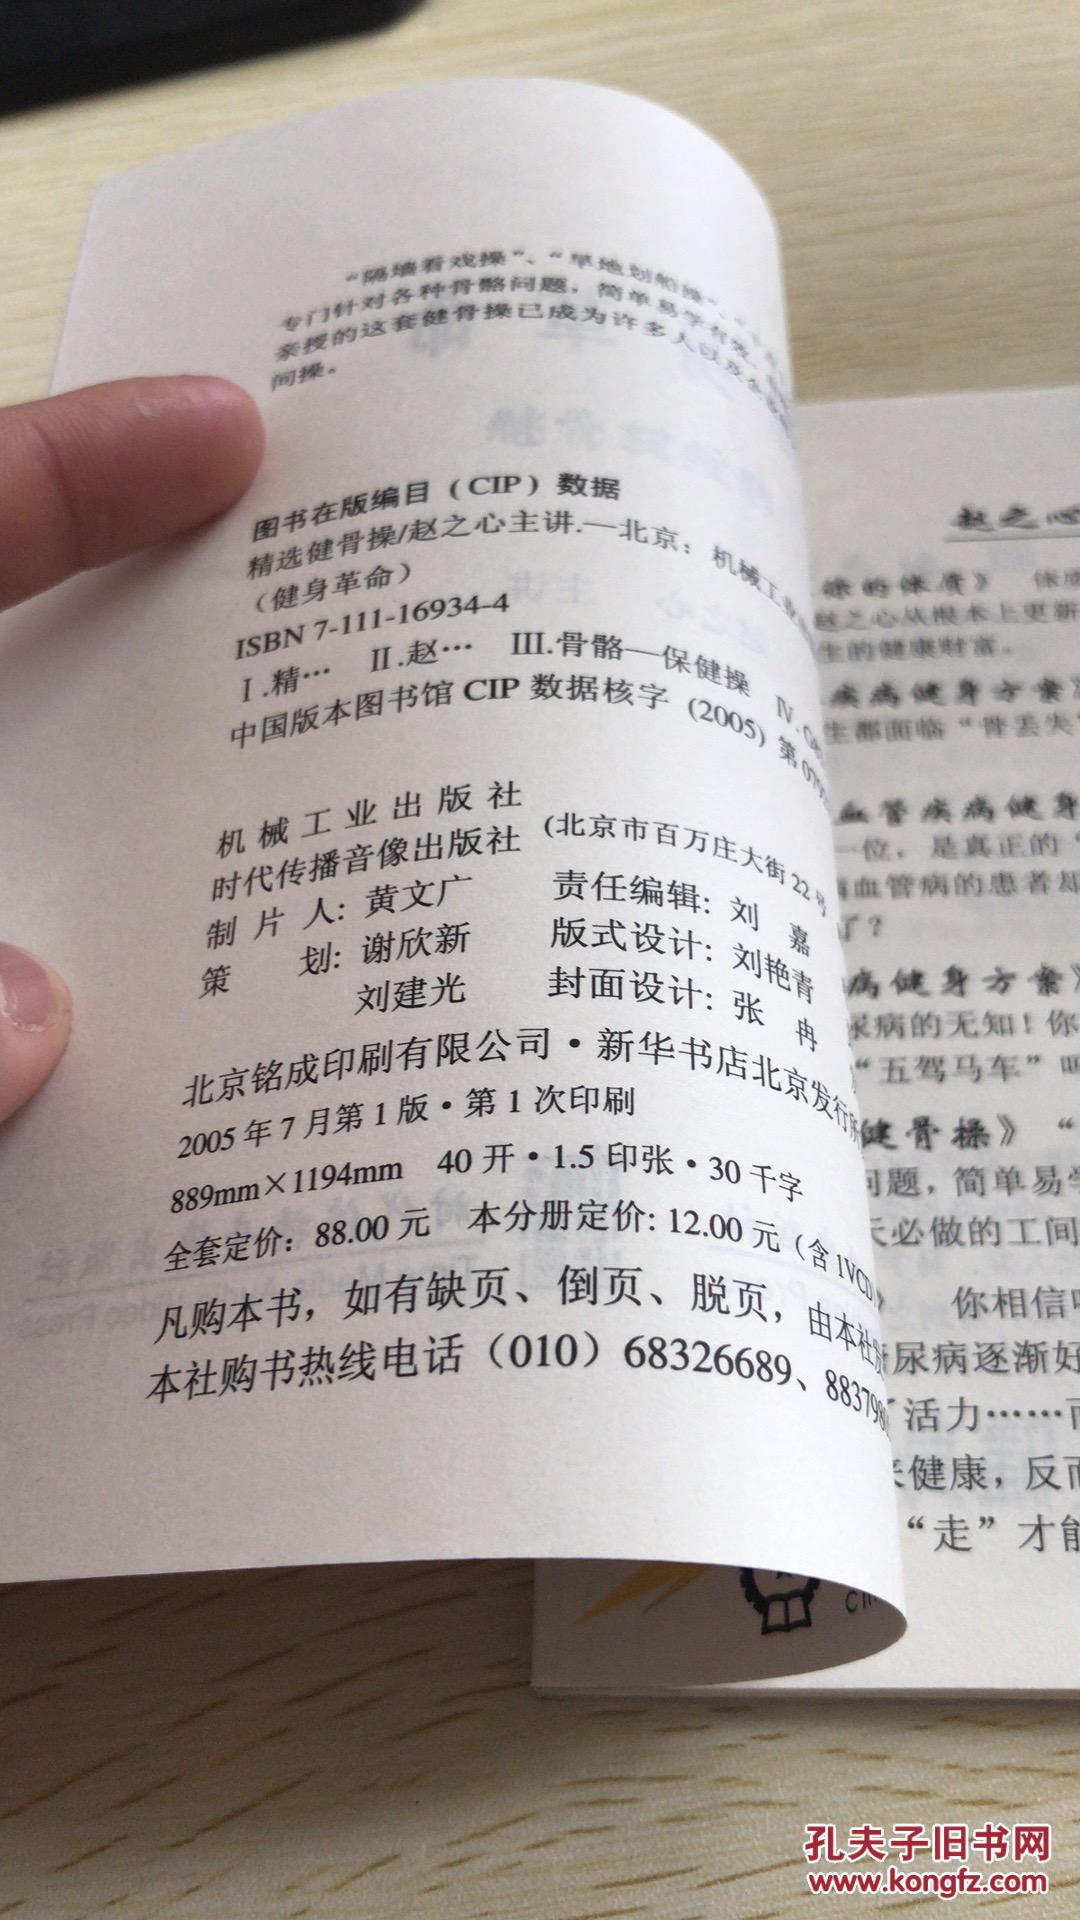 “隔墙看戏操”、“旱地划船操”、
专门针对各种骨骼问题，简单易学有效，
亲授的这套健骨操已成为许多人以及
间操。
图书在版编目（CIP）数据
精选健骨操/赵之心主讲.—北京：机械工业
（健身革命）
ISBN 7-111-16934-4
Ⅰ.精… Ⅱ.赵… Ⅲ.骨骼—保健操 Ⅳ.
中国版本图书馆CIP数据核字（2005）第079
机械工业出版社
时代传播音像出版社（北京市百万庄大街22号
制片人：黄文广 责任编辑：刘嘉
策划：谢欣新 版式设计：刘艳青
刘建光 封面设计：张冉
北京铭成印刷有限公司·新华书店北京发行所
2005年7月第1版·第1次印刷
889mm×1194mm 40开·1.5印张·30千字
全套定价：88.00元 本分册定价：12.00元（含1VCD）
凡购本书，如有缺页、倒页、脱页，由本社
本社购书热线电话（010）68326689、883798
赵之心
的体质》 体质
赵之心从根本上更新
生的健康财富。
疾病健身方案》
生都面临“骨丢失”
血管疾病健身
一位，是真正的“
脑血管病的患者却
了？
病健身方案》
尿病的无知！你
“五驾马车”吗
健骨操》“
问题，简单易学
天必做的工间
》 你相信吗
糖尿病逐渐好
了活力……而
来健康，反而
“走”才能
孔夫子旧书网
www.kongfz.com